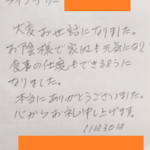 大変お世話になりました。
お陰様で家族も元気になり
食事の仕度もできるように
なりました。
本当にありがとうございました。
心からお礼申し上げます。
11月30日